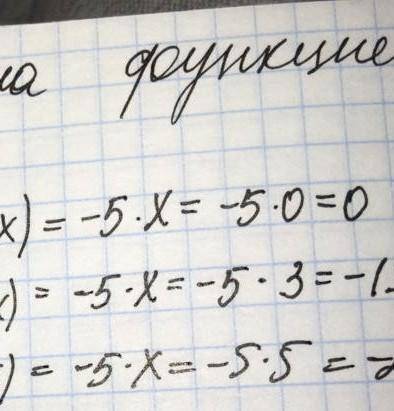 на функцие
x) = -5·x = -5·0 = 0
x) = -5·x = -5·3 = -1
) = -5·x = -5·5 = -2